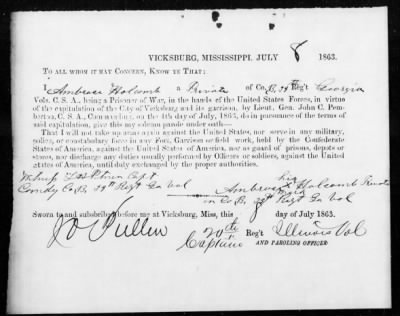 VICKSBURG, MISSISSIPPI, JULY 8 1863.
TO ALL WHOM IT MAY CONCERN, KNOW YE THAT:
I, Ambrose Holcomb a Private of Co. B, 39th Reg't Georgia
Vols. C. S. A., being a Prisoner of War, in the hands of the United States Forces, in virtue
of the capitulation of the City of Vicksburg and its garrison, by Lieut. Gen. John C. Pem-
berton, C. S. A., Commanding, on the 4th day of July, 1863, do in pursuance of the terms of
said capitulation, give this my solemn parole under oath—
That I will not take up arms again against the United States, nor serve in any military,
police, or constabulary force in any Fort, Garrison or field work, held by the Confederate
States of America, against the United States of America, nor as guard of prisons, depots or
stores, nor discharge any duties usually performed by Officers or soldiers, against the United
States of America, until duly exchanged by the proper authorities.
Capt
Comdg Co. B 39th Regt Ga Vol
his
Ambrose X Holcomb Private
mark
in Co B 39th Regt Ga Vol
Sworn to and subscribed before me at Vicksburg, Miss., this 8 day of July 1863.
J O Pullen 20th Reg't Illinois Vol
Captain AND PAROLING OFFICER